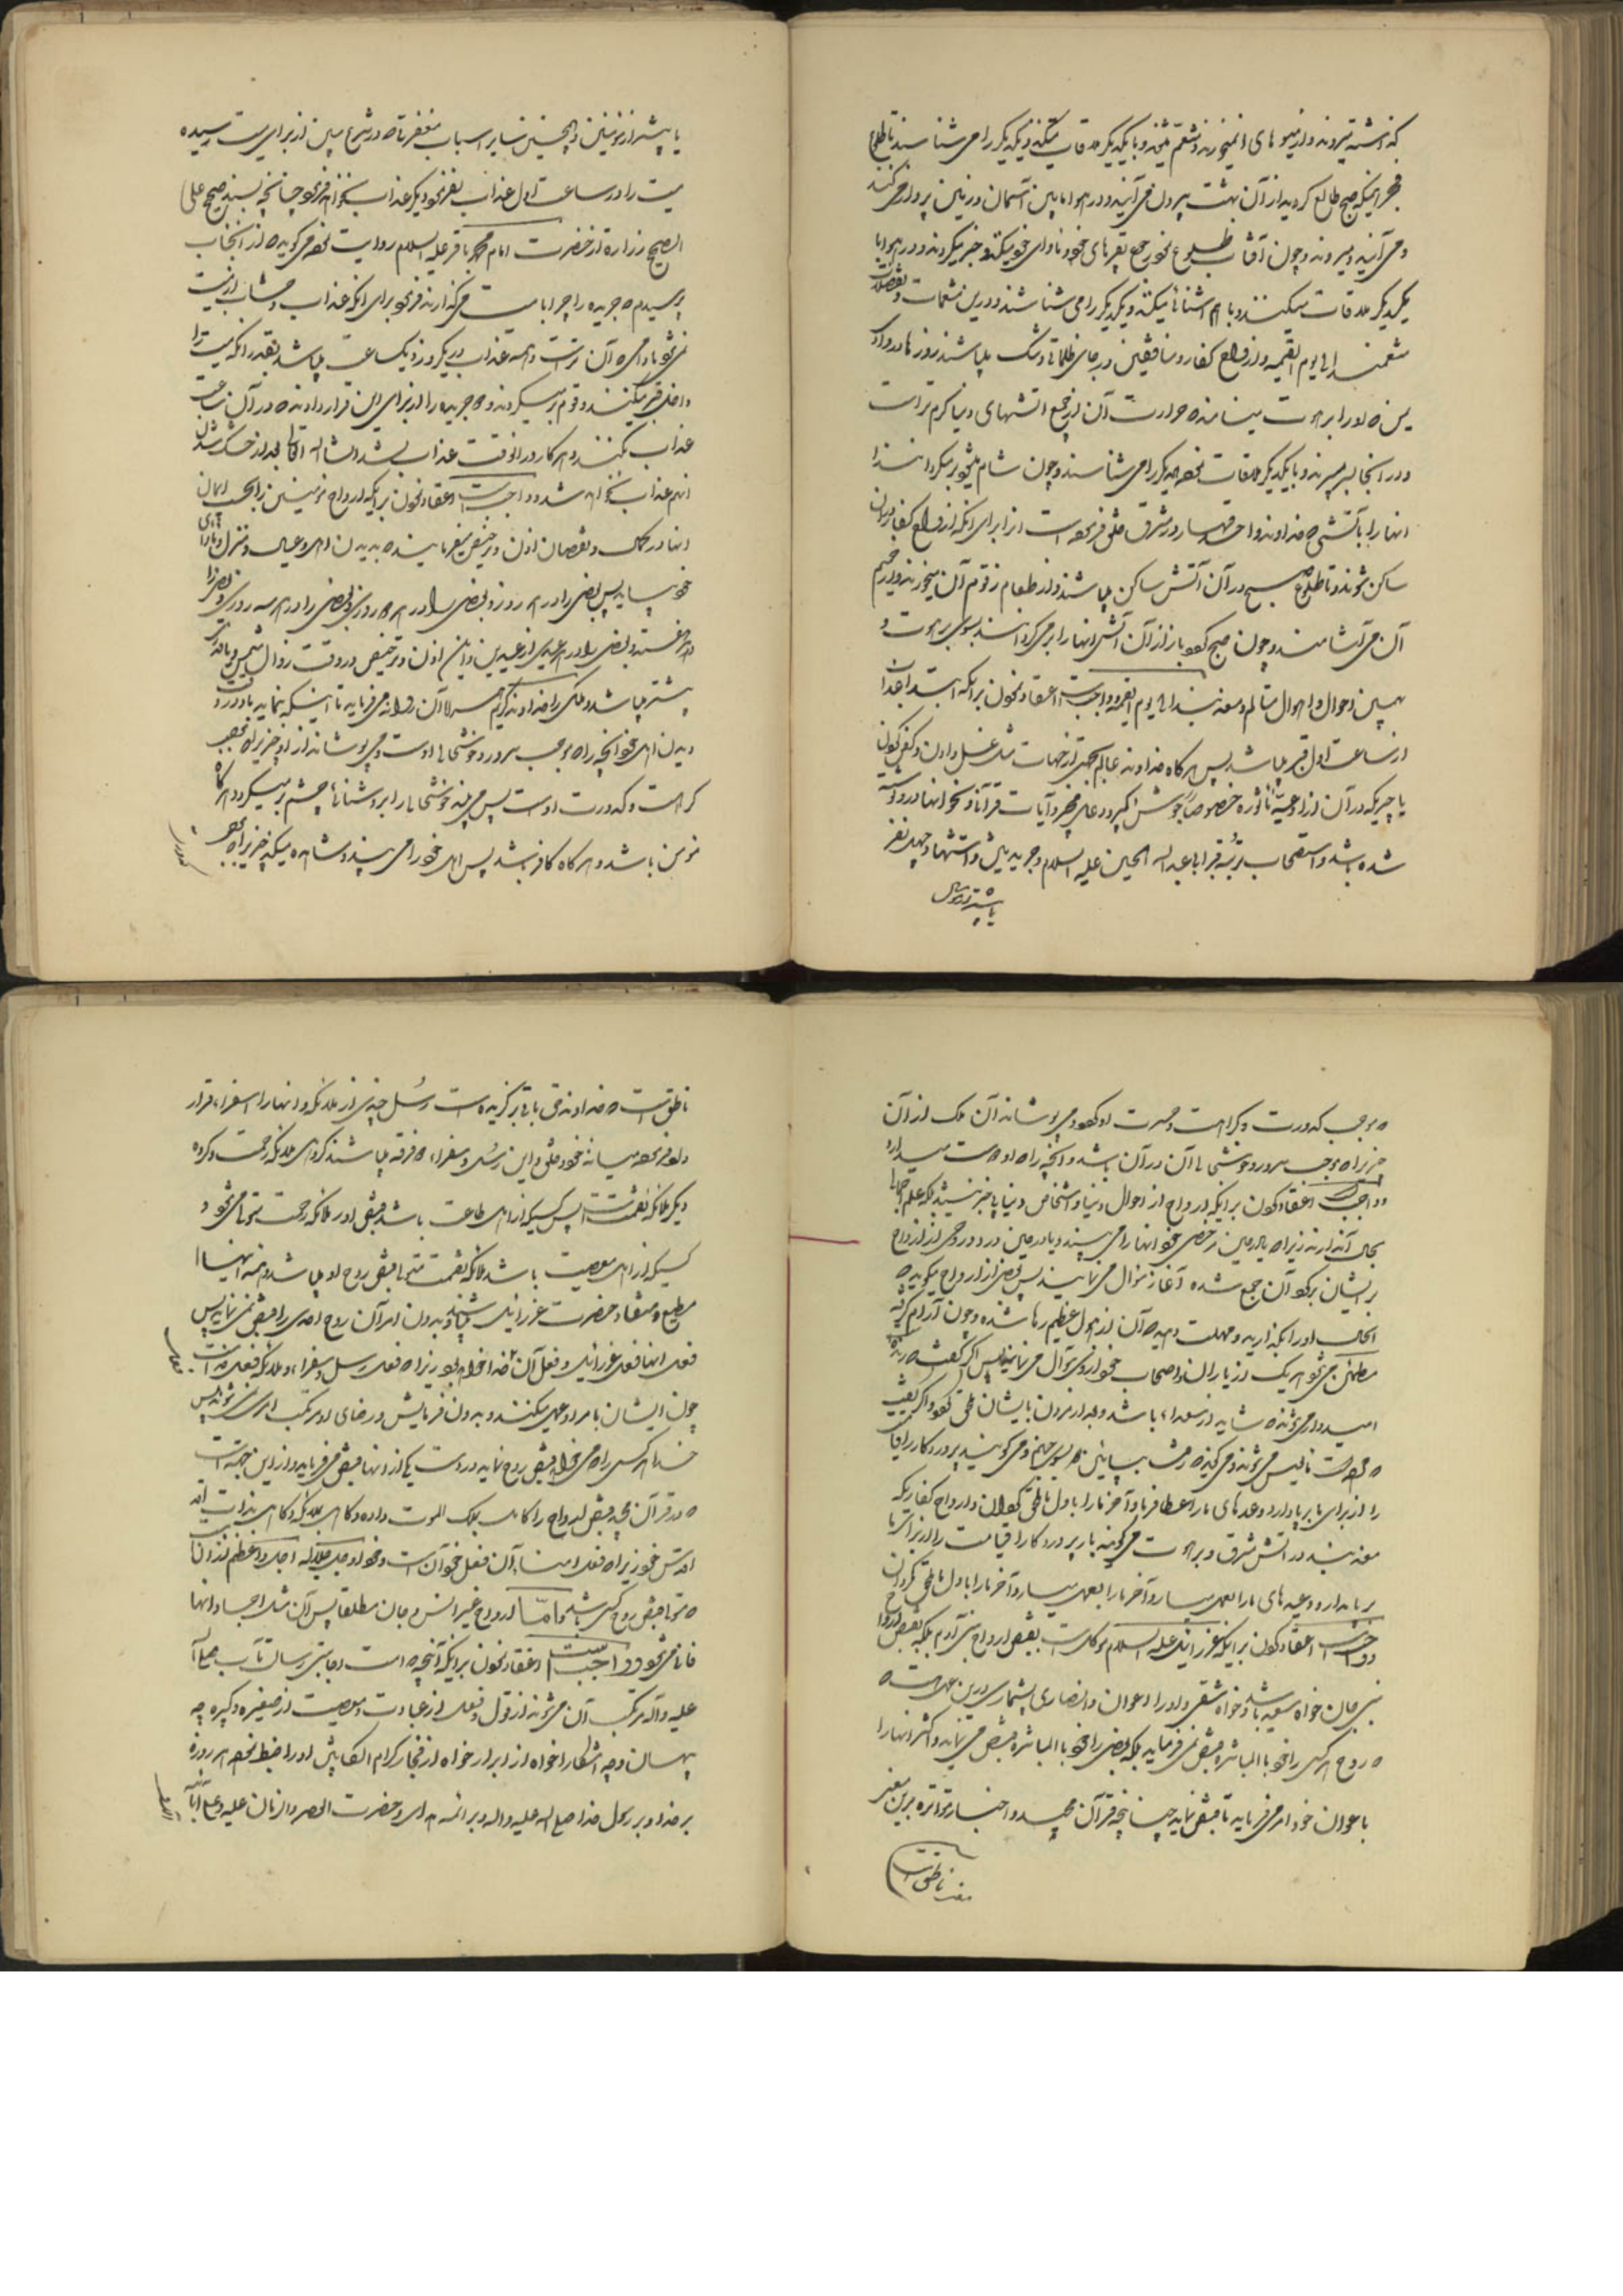 که داشته میروند و از میوهای آن میخورند و متنعم میشوند و با یکدیگر ملاقات میکنند و یکدیگر را می شناسند تا طلوع
فجر اینکه صبح طالع کردید از آن بهشت بیرون می آیند و در هوا مابین آسمان و زمین پرواز می کنند
و می آیند و میروند و چون آفتاب طلوع نمود رجوع بقبرهای خود و ماوای خود میکنند و در هوا با
یکدیگر ملاقات میکنند و با هم آشنائی میکنند و یکدیگر را می شناسند و در این
متنعمند الی یوم القیمه و ارواح کفار و منافقین در جای ظلمانی و تنک میباشند روزها در وادی
یمن که او را برهوت مینامند که حرارت آن از جمیع آتشهای دنیا کرم تر است
و در آنجا بسر میبرند و با یکدیگر ملاقات نموده همدیگر را می شناسند و چون شام میشود بر میکردانند خدا
انها را بآتشی که خداوند واحد قهار در مشرق خلق فرموده است انرا برای آنکه ارواح کفار در آن
ساکن شوند و تا طلوع صبح در آن آتش ساکن میباشند و از طعام زقوم آن میخورند و از حمیم
آن می آشامند و چون صبح شود باز از آن آتش انها را بر می کردانند بسوی برهوت و
بهمین احوال و اهوال متألم و معذبند الی یوم القیمه و واجبست اعتقاد نمودن بر آنکه ابتدا عذاب
از ساعت اول قبر میباشد پس هرکاه خداوند عالم بجهتی از جهات مثل غسل دادن و کفن نمودن
یا چیزیکه در آن از ادعیه مأثوره خصوصا جوشن کبیر و دعای و آیات قرآنی و نحو انها در او نوشته
شده باشد و استصحاب تربت قبر ابا عبد الله الحسین علیه السلام و جریدتین و استشهاد چهل نفر
یا بیشتر از مؤمنین
یا بیشتر از مؤمنین و همچنین سایر اسباب مغفرتی که در شرع مبین از برای میت رسیده
میت را در ساعت اول عذاب نفرمود دیگر عذاب نخواهد فرمود چنانچه بسند صحیح علی
الصحیح زراره از حضرت امام محمد باقر علیه السلام روایت نموده می کوید که از آنجناب
پرسیدم که جریده را چرا با میت می گذارند فرمود برای آنکه عذاب و حساب از میت
نمی شود مادامی که آن تر است و همه عذاب در یکروز و یکساعت میباشد بقدر آنکه میت را
داخل قبر میکنند و قوم بر میکردند و دو جریده را از برای این قرار دادند که در آن ساعت
عذاب نکنند و هرگاه در آنوقت عذاب نشد انشاء الله تعالی بعد از خشک شدن
انهم عذاب نخواهد شد و واجبست اعتقاد نمودن بر آنکه ارواح مؤمنین را بحسب ایمان
انها در کمال و نقصان اذن و ترخیص میفرمایند که بدیدن اهل و عیال و منزل و ماوای
خود بیایند پس بعضی را در هر روز و بعضی را در هر دو روز و بعضی را در هر سه روز و بعضی را
در هر هفته و بعضی را در هر عیدی از عیدین و این اذن و ترخیص در وقت زوال شمس
بیشتر میباشد و ملکی را خداوند کریم همراه آن روانه می فرماید تا اینکه بنماید باو در وقت
دیدن اهل خود آنچه را که موجب سرور و خوشحالی اوست و می پوشاند از او چیزیرا که موجب
کراهت و کدورت اوست پس می بیند خوشحالی را و روشنائی چشم بر میکردد هرگاه
مؤمن باشد و هرگاه کافر باشد پس اهل خود را می بیند و مشاهده میکند چیزیرا که موجب
که موجب کدورت و کراهت و حسرت او شود و می پوشاند آن ملک از آن
چیزیرا که موجب سرور و خوشحالی آن در آن باشد و آنچه را که او دوست میدارد
و واجبست اعتقاد نمودن بر آنکه ارواح از احوال دنیا و اشخاص دنیا باخبر نیستند بلکه علم و جهل
بحال آنها دارند زیرا که یا در حین رخصت خود انها را می بینند و یا در حین ورود روحی از ارواح
بریشان بر کرد آن جمع شده آغاز سؤال می نمایند پس بعضی از ارواح میکوید که
الحال او را بگذارید و مهلت دهید که آن از هول عظیم رها شده و چون آرام گرفته
مطمئن می شود هریک از یاران و اصحاب خود از وی سؤال می نمایند پس اگر گفت که زنده
امیدوار می شوند که شاید از سعداء باشد و بعد از مردن بایشان ملحق شود و اگر گفت
که مرده است مایوس می شوند و می کویند که رفت بپائین بسوی جهنم و می کویند پروردکارا قیامت
را از برای ما برپا دار و وعدهای ما را عطا فرما و آخر ما را باول ما ملحق گردان و ارواح کفاریکه
معذبند در آتش شرق و برهوت می کویند پروردکارا قیامت را از برای ما
برپا مدار و وعیدهای ما را بعمل میار و آخر ما را باول ما ملحق مکردان
و واجبست اعتقاد نمودن بر آنکه عزرائیل علیه السلام موکل است بقبض ارواح بنی آدم بلکه بقبض ارواح
بنی جان خواه سعید باشد و خواه شقی و او را اعوان و انصاری بیشمار در این عمل هست
که روح هرکس را خود بالمباشره قبض نمی فرماید بلکه بعضی را خود بالمباشره قبض می نماید و اکثر انها را
باعوان خود امر می فرماید تا قبض نمایند چنانچه قرآن مجید و اخبار متواتره برین معنی
ناطق است
ناطق است که خداوند حق تعالی برگزیده است رسل چندی از ملائکه و انها را سفراء قرار
داده میانه خود و خلق و این رسل و سفراء دو فرقه میباشند گروهی ملائکه رحمت و گروه
دیگر ملائکه نقمت پس کسیکه از اهل طاعت باشد قبض او را ملائکه رحمت متوجه می شود و
کسیکه از اهل معصیت باشد ملائکه نقمت متوجه قبض روح او میباشد و همه اینها
مطیع و منقاد حضرت عزرائیل میباشند و بدون امر آن روح احدی را قبض نمی نمایند پس
فعل انها فعل عزرائیل و فعل آن فعل خدا خواهد بود زیرا که فعل رسل و سفراء و ملائکه فعل خداست
چون ایشان بامر او عمل میکنند و بدون فرمایش و رضای او مرتکب امری نمی شوند پس
خدا هرکس را که می خواهد قبض روح نماید بدست یکی از انها قبض می فرماید و از این جهت است
که در قرآن مجید قبض ارواح را گاهی بملک الموت داده و گاهی بملائکه و گاهی بذات
اقدس خود زیرا که فعل امناء آن فعل خود آنست و خداوند جل جلاله اجل و اعظم از آن
که متوجه قبض روح کسی باشد و اما ارواح غیر انس و جان مطلقا پس آن مثل اجساد انها
فانی می شود و واجبست اعتقاد نمودن بر آنکه آنچه که امت و رعایتی رسالت مآب صلی الله
علیه و آله مرتکب آن می شوند از قول و فعل از عبادت و معصیت از صغیره و کبیره چه
پنهان و چه آشکارا خواه از ابرار خواه از فجار کرام الکاتبین او را ضبط نموده هر روزه
بر خدا و بر رسول خدا صلی الله علیه و اله و بر ائمه هدی و حضرت العصر و الزمان علیه و علی آبائه